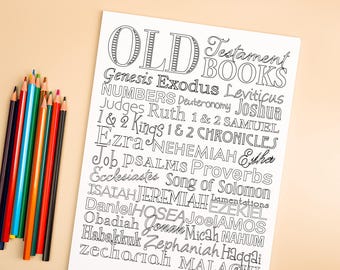 OLD Testament
BOOKS
Genesis Exodus Leviticus
NUMBERS Deuteronomy Joshua
Judges Ruth 1 & 2 SAMUEL
1 & 2 Kings 1 & 2 CHRONICLES
Ezra NEHEMIAH Esther
Job PSALMS Proverbs
Ecclesiastes Song of Solomon
ISAIAH JEREMIAH Lamentations EZEKIEL
Daniel HOSEA Joel AMOS
Obadiah Jonah Micah NAHUM
Habakkuk Zephaniah Haggai
zechariah MALAC